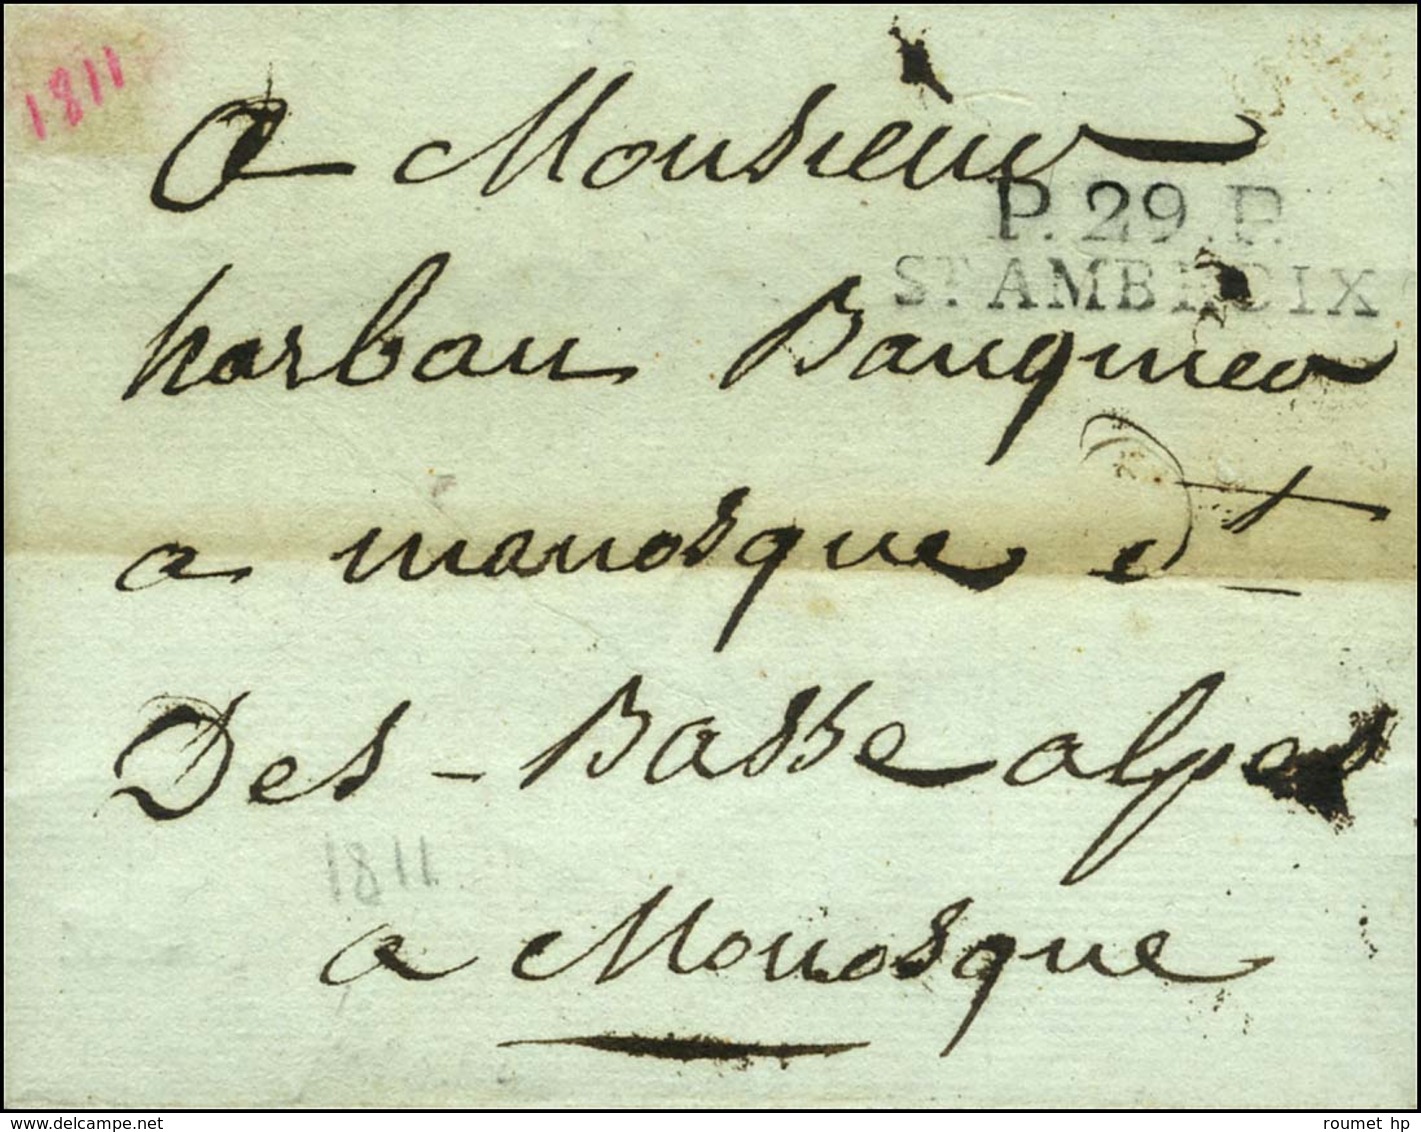 1811
A Monsieur
P.29.P.
ST AMBROIX
harbau Banquier
a manosque dt
Des - Basse alpes
1811
a Monosque
delcampe.net
roumet hp